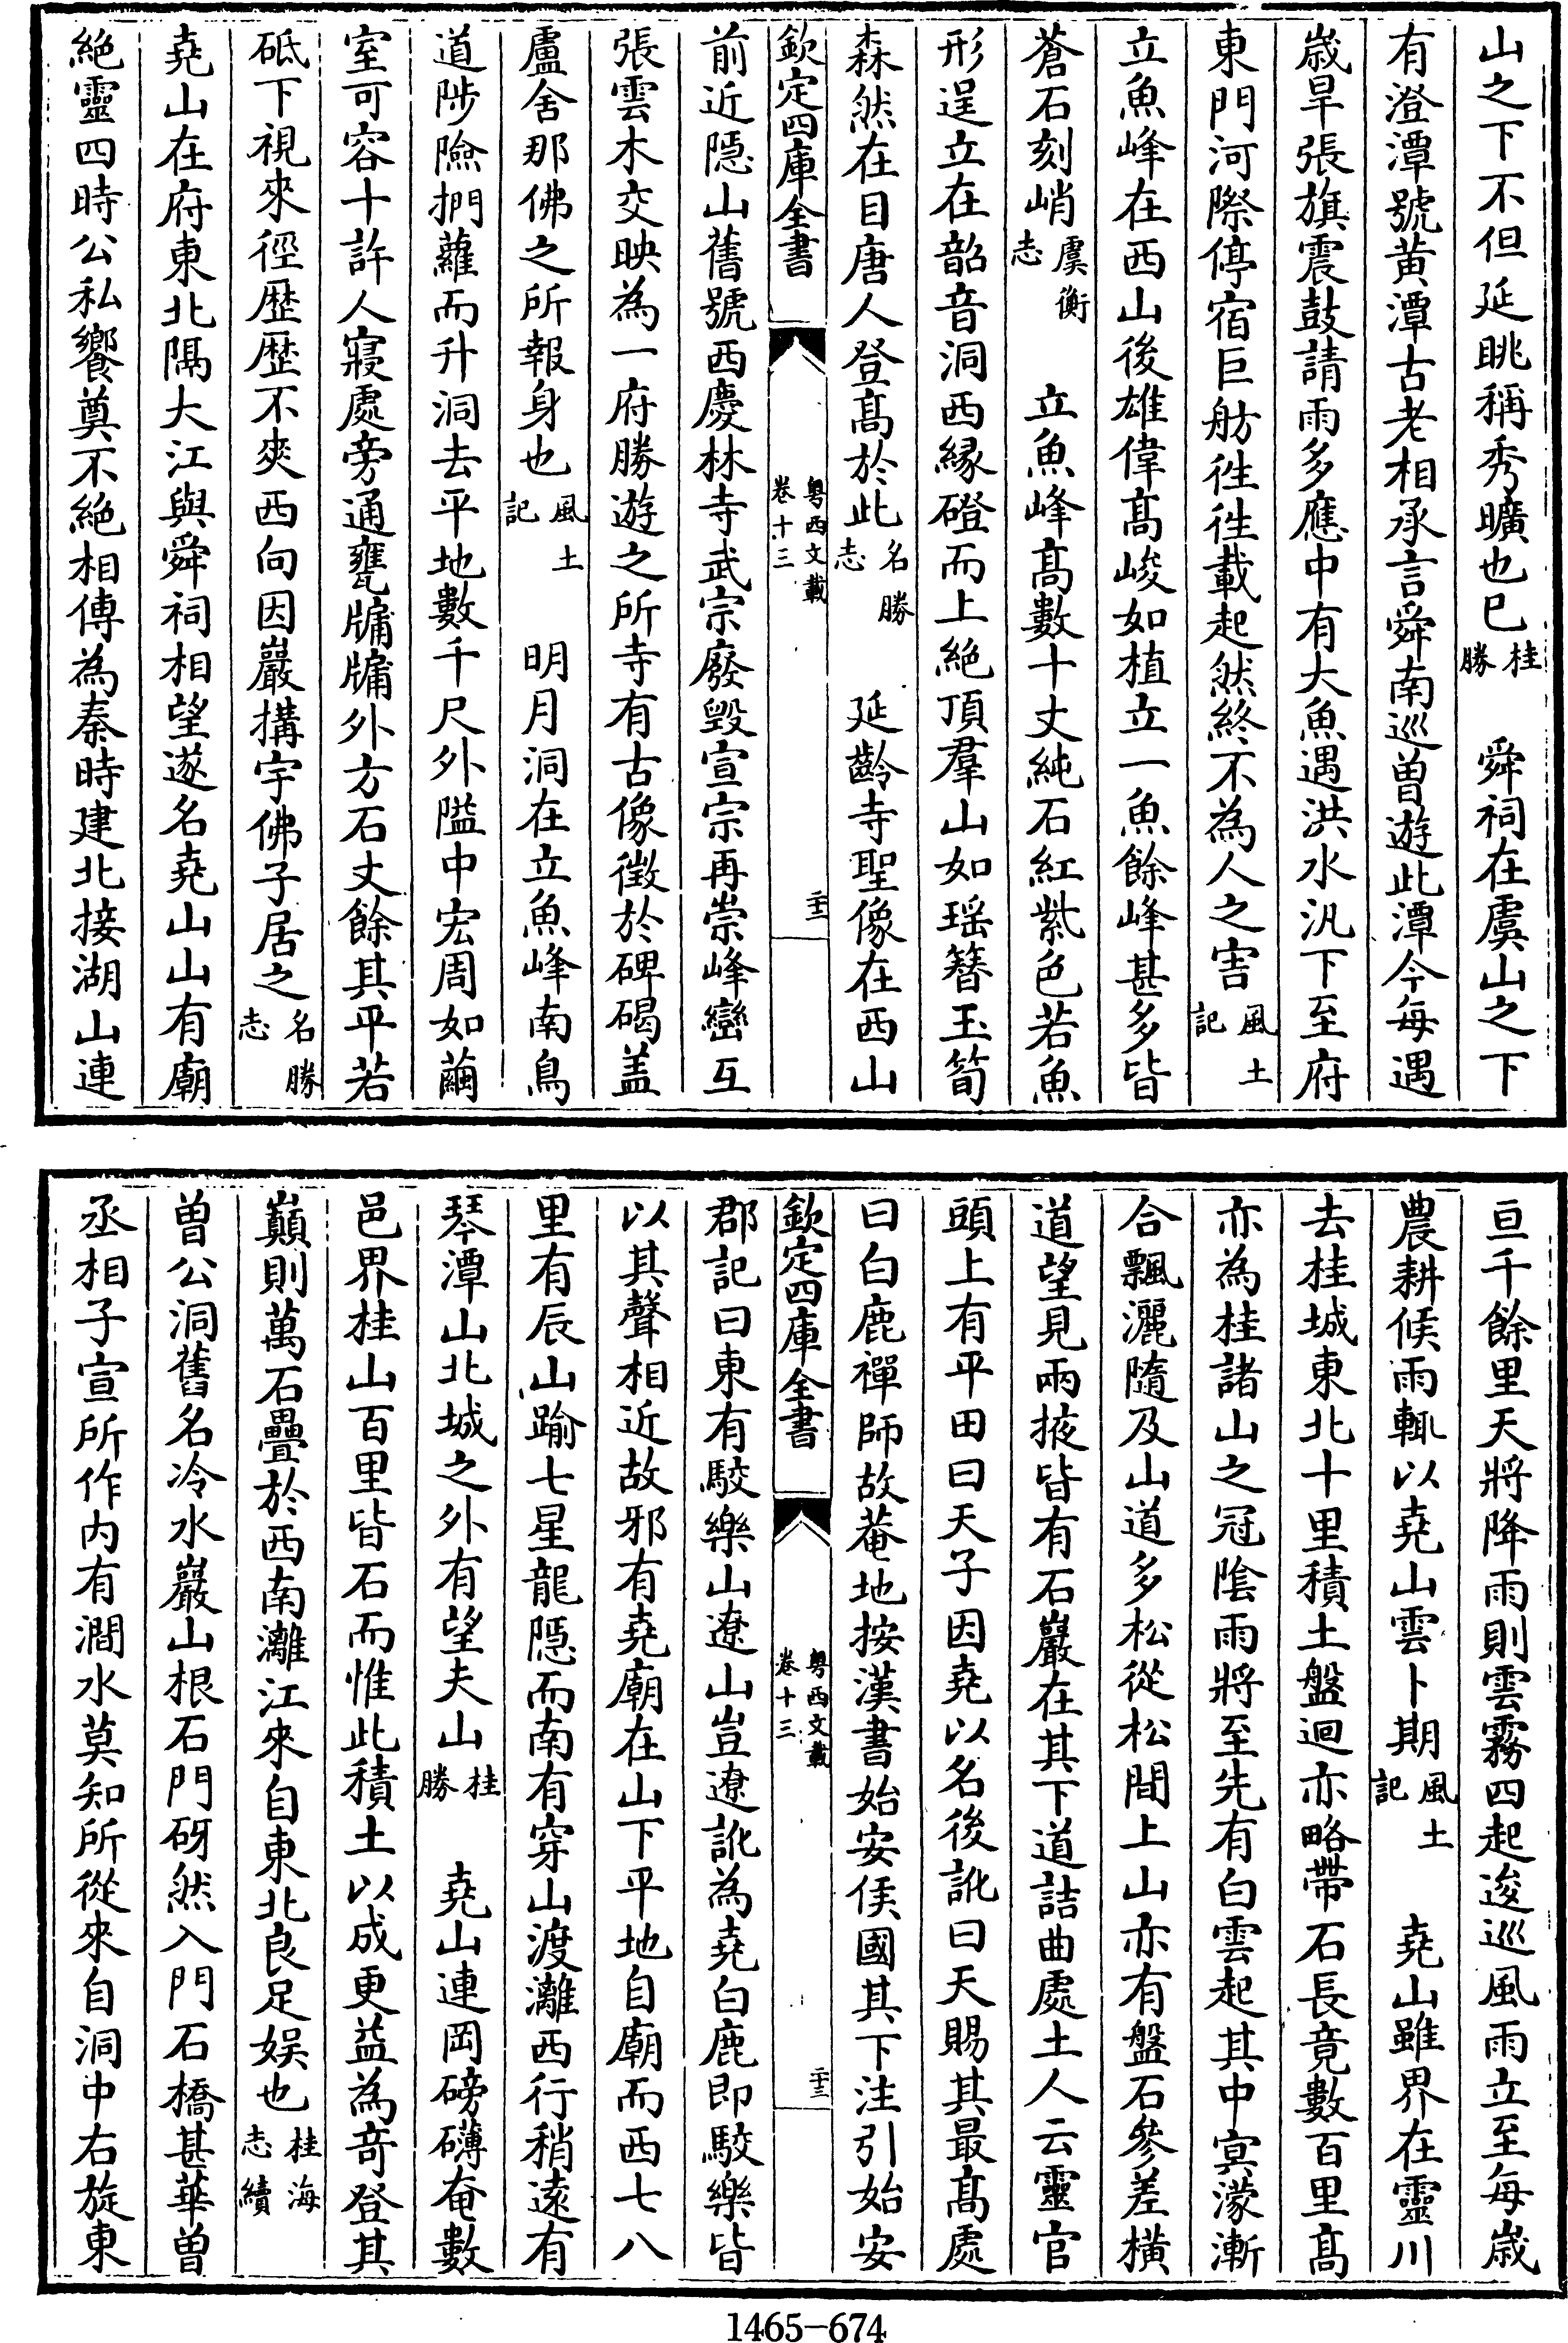 山之下不但延眺稱秀曠也已桂勝　舜祠在虞山之下
有澄潭號黄潭古老相承言舜南巡曽遊此潭今每遇
歳旱張旗震鼓請雨多應中有大魚遇洪水汎下至府
東門河際停宿巨舫徃徃載起然終不為人之害風土記
立魚峰在西山後雄偉髙峻如植立一魚餘峰甚多皆
蒼石刻峭虞衡志　立魚峰髙數十丈純石紅紫色若魚
形逞立在韶音洞西縁磴而上絶頂羣山如瑶簪玉筍
森然在目唐人登髙於此名勝志　延齡寺聖像在西山
欽定四庫全書　粤西文載卷十三　二十二
前近隠山舊號西慶林寺武宗廢毁宣宗再崇峰巒互
張雲木交映為一府勝遊之所寺有古像徴於碑碣盖
盧舍那佛之所報身也風土記　明月洞在立魚峰南鳥
道陟險捫蘿而升洞去平地數千尺外隘中宏周如繭
室可容十許人寢處旁通甕牖牖外方石丈餘其平若
砥下視來徑歴歴不爽西向因巖搆宇佛子居之名勝志
堯山在府東北隅大江與舜祠相望遂名堯山山有廟
絶靈四時公私饗奠不絶相傳為秦時建北接湖山連
亘千餘里天將降雨則雲霧四起逡巡風雨立至每歳
農耕候雨輒以堯山雲卜期風土記　堯山雖界在靈川
去桂城東北十里積土盤迴亦略帶石長竟數百里髙
亦為桂諸山之冠陰雨將至先有白雲起其中㝠濛漸
合飄灑隨及山道多松從松間上山亦有盤石參差横
道望見兩掖皆有石巖在其下道詰曲處土人云靈官
頭上有平田曰天子因堯以名後訛曰天賜其最髙處
曰白鹿禪師故菴地按漢書始安侯國其下注引始安
欽定四庫全書　粤西文載卷十三　二十三
郡記曰東有駮樂山遼山豈遼訛為堯白鹿即駮樂皆
以其聲相近故邪有堯廟在山下平地自廟而西七八
里有辰山踰七星龍隠而南有穿山渡灕西行稍遠有
琴潭山北城之外有望夫山桂勝　堯山連岡磅礴奄數
邑界桂山百里皆石而惟此積土以成更益為竒登其
巔則萬石疊於西南灕江來自東北良足娱也桂海志續
曽公洞舊名冷水巖山根石門砑然入門石橋甚華曽
丞相子宣所作内有澗水莫知所從來自洞中右旋東
1465-674